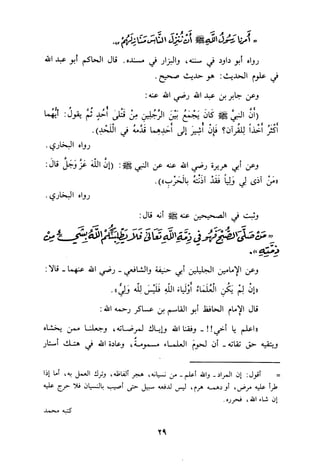 « أمرنا رسول الله ﷺ أن ننزل الناس منازلهم ».
رواه أبو داود في سننه، والبزار في مسنده. قال الحاكم أبو عبد الله
في علوم الحديث: هو حديث صحيح.
وعن جابر بن عبد الله رضي الله عنه:
(أن النبي ﷺ كَانَ يَجْمَعُ بَيْنَ الرَّجُلَيْنِ مِنْ قَتْلَى أُحُدٍ ثُمَّ يقول: أَيُّهما
أكثَرُ أخْذاً لِلْقُرآنِ؟ فَإِنْ أُشيرَ إلى أحَدِهِما قَدَّمَهُ في اللَّحْدِ).
رواه البخاري.
وعن أبي هريرة رضي الله عنه عن النبي ﷺ: (إنَّ اللَّهَ عَزَّ وَجَلَّ قالَ:
«مَنْ آذى لي وَلِياً فَقَدْ آذَنْتُهُ بالحَرْبِ»).
رواه البخاري.
وثبت في الصحيحين عنه ﷺ أنه قال:
« من صلى الصبح فهو في ذمة الله تعالى فلا يطلبنكم الله بشيء من
ذمته ».
وعن الإمامين الجليلين أبي حنيفة والشافعي - رضي الله عنهما - قالا:
«إنْ لَم يَكُنِ العُلَمَاءُ أوْلِياءَ اللَّهِ فَلَيْسَ لِلَّهِ وَلِيٌّ».
قال الإمام الحافظ أبو القاسم بن عساكر رحمه الله:
«اعلم يا أخي!! - وفقنا الله وإياك لمرضاته، وجعلنا ممن يخشاه
ويتقيه حق تقاته - أن لحومَ العلماء مسمومةٌ، وعادة الله في هتك أستار
= أقول: إن المراد - والله أعلم - من نسيانه، هجر ألفاظه، وترك العمل به، أما إذا
طرأ عليه مرض، أو دهمه هرم، ليس لدفعه سبيل حتى أصيب بالنسيان فلا حرج عليه
إن شاء الله، فحرره.
كتبه محمد
٢٩